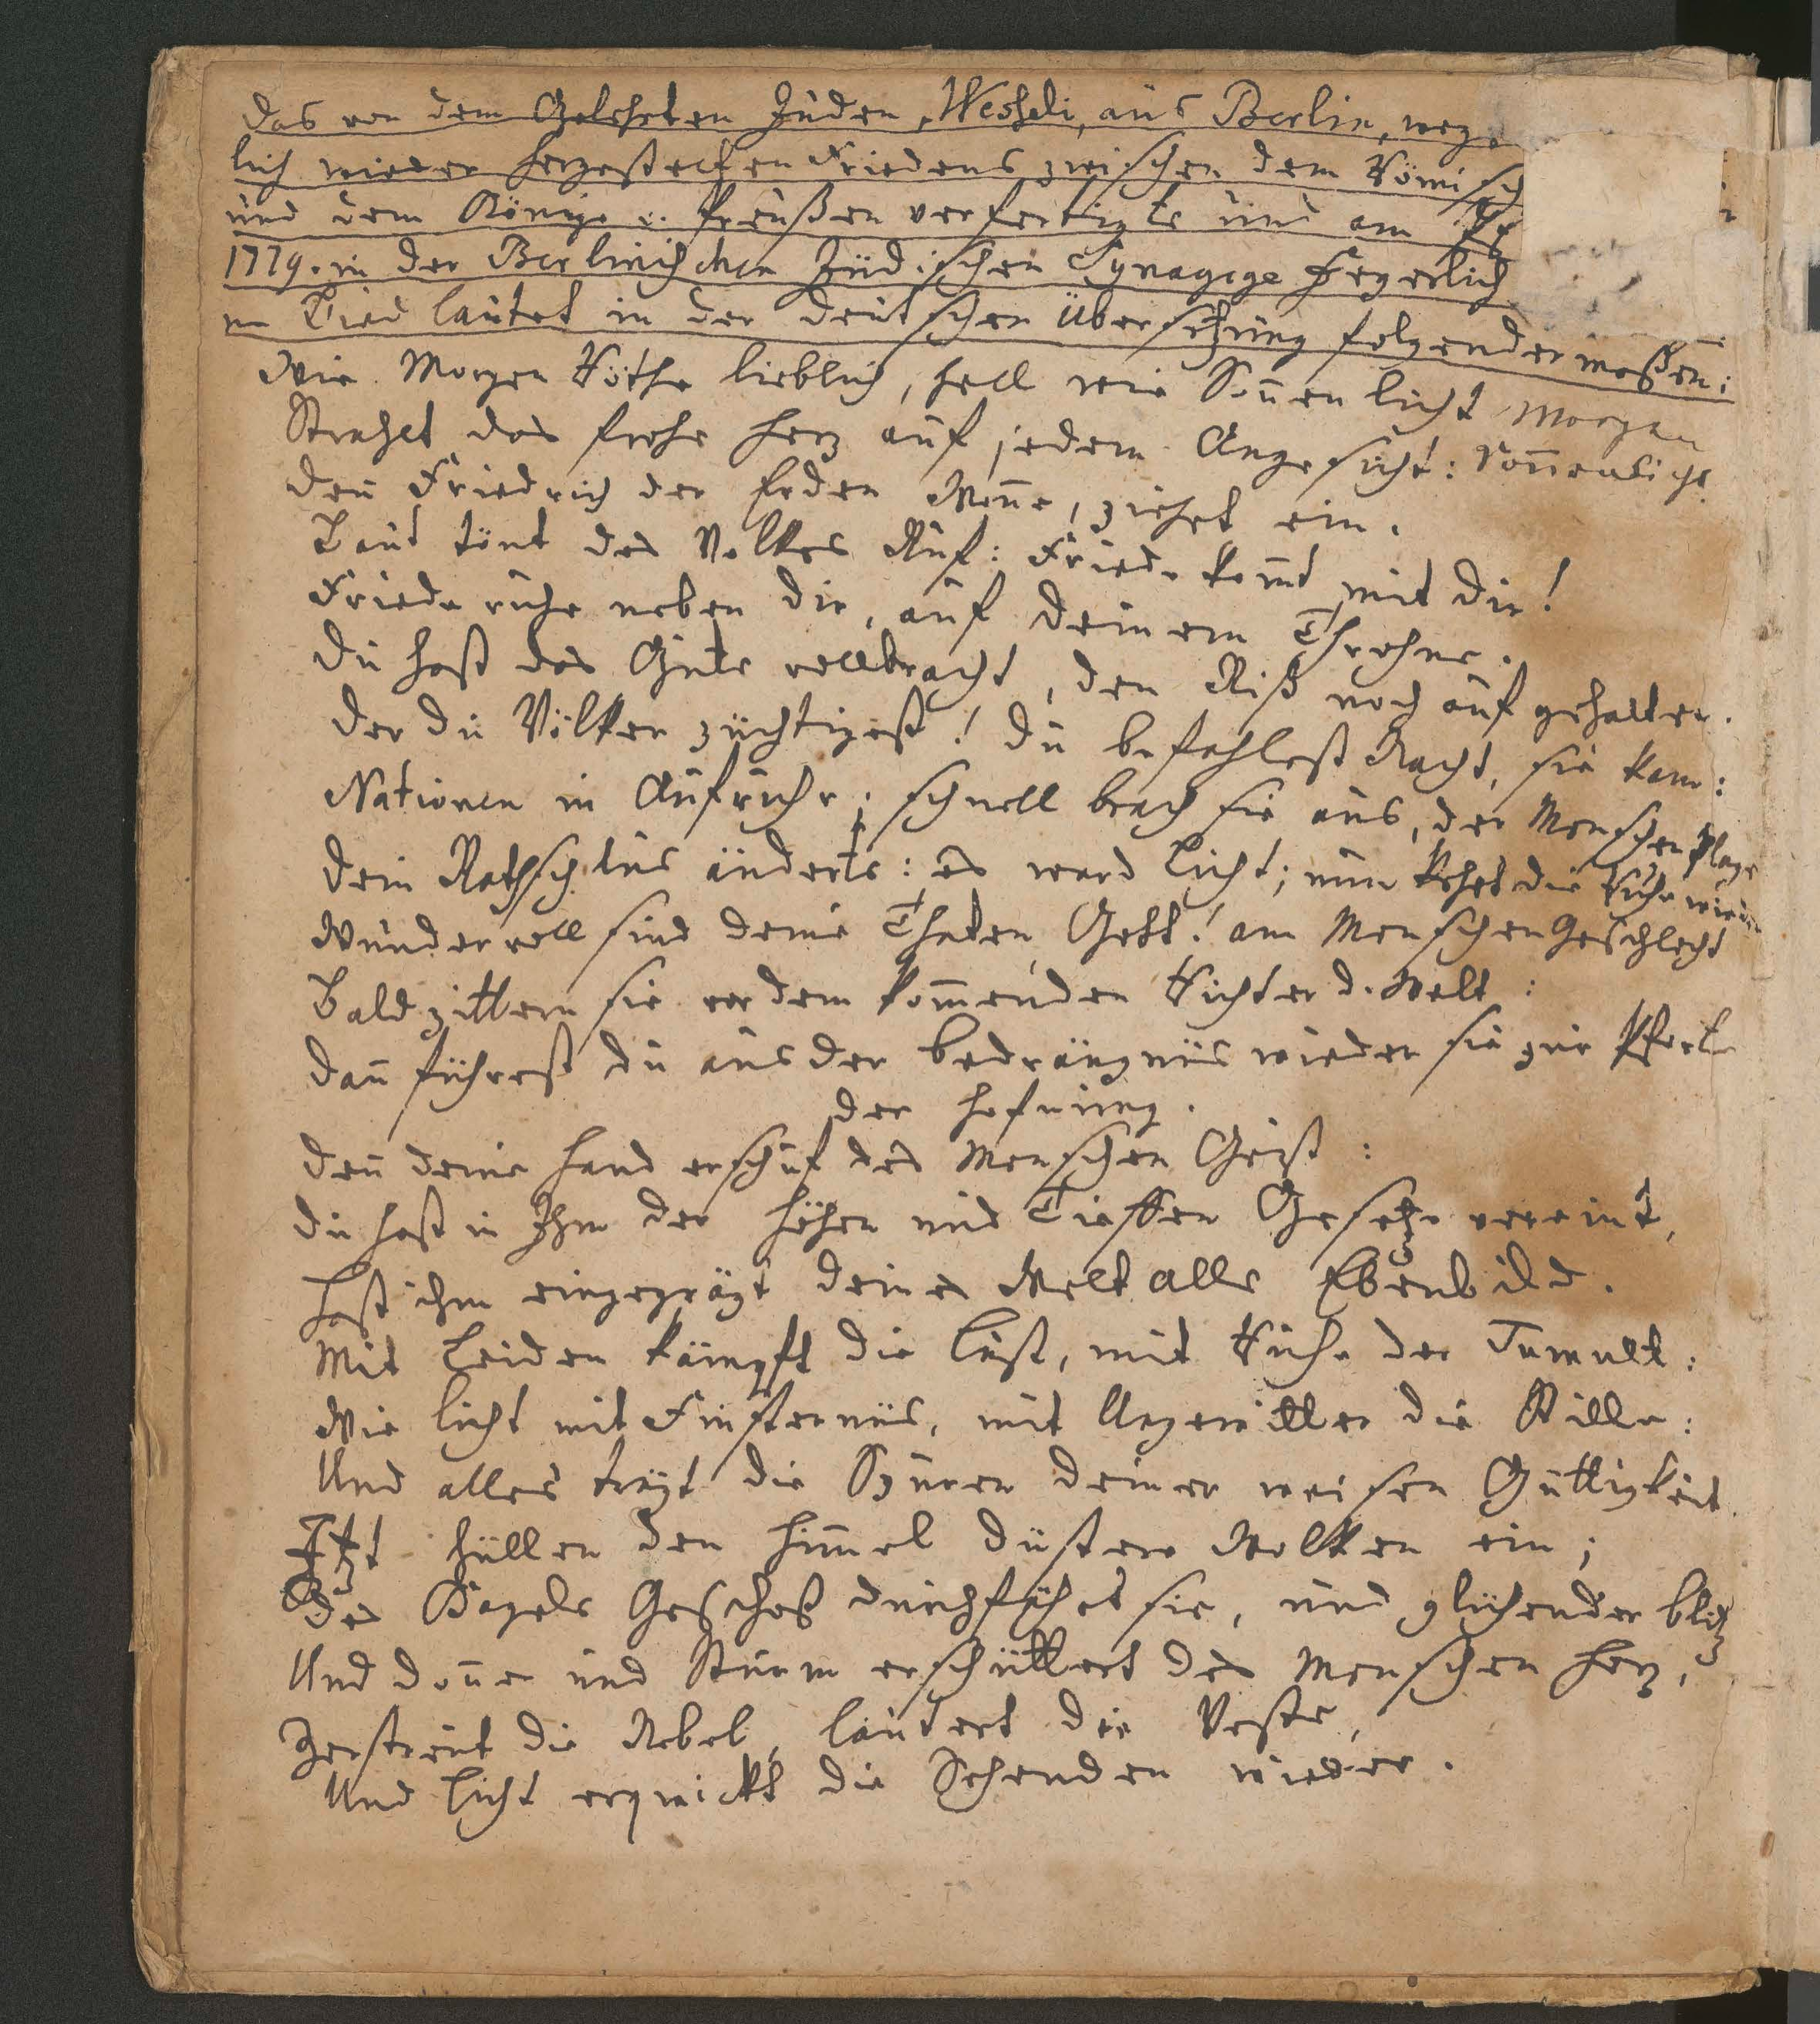 Das von dem Gelehrten Juden, Wesseli, aus Berlin, weg
lich wieder hergestelten Friedens zwischen dem Römisch
und dem Könige v. Preußen verfertigte und am
1779. in der Berlinischen Jüdischen Synagoge feyerlich
ne Lied lautet in der deutschen Übersetzung folgendermaßen:
Wie Morgen Röthe lieblich, hell wie Soñen licht Morgen
Strahlet das frohe Herz auf jedem Angesicht: Soñenlicht
Deñ Friedrich der Erden Woñe, ziehet ein.
Laut tönt des Volkes Ruf: Friede kom̃t mit dir!
Friede ruhe neben dir, auf deinem Throhne.
Du hast das Gute vollbracht, den Riß noch auf gehalten.
Der du Völker züchtigest! du befahlest Nacht, sie kam:
Nationen in Aufruhr; schnell brach sie aus, der Menschen Plage
Dein Rathschlus änderts: es ward Licht; nun kehrt die Ruhe wieder
Wundervoll sind deine Thaten, Gott! am Menschen Geschlecht
Bald zittern sie vor dem kom̃enden Richter d. Welt:
Dañ führest du aus der Bedrängnüs wieder sie zur Pforte
der Hofnung.
Deñ deine Hand erschuf des Menschen Geist:
Du hast in Ihm der Höhen und Tieffen Gesetze vereint,
Hast ihm eingeprägt deines Welt alls Ebenbild.
Mit Leiden kämpft die Lust, mit Ruhe der Tumult:
Wie Licht mit Finsternüs, mit Ungewitter die Stille:
Und alles trägt die Spuren deiner weisen Güttigkeit.
Itzt hüllen den Him̃el düstere Wolken ein;
Des Hagels Geschoß durchfährt sie, und glühender Blitz
Und Doñer und Sturm erschüttert des Menschen Herz,
Zerstreut die Nebel, läutert die Veste,
Und Licht erquickt die Sehenden wieder.